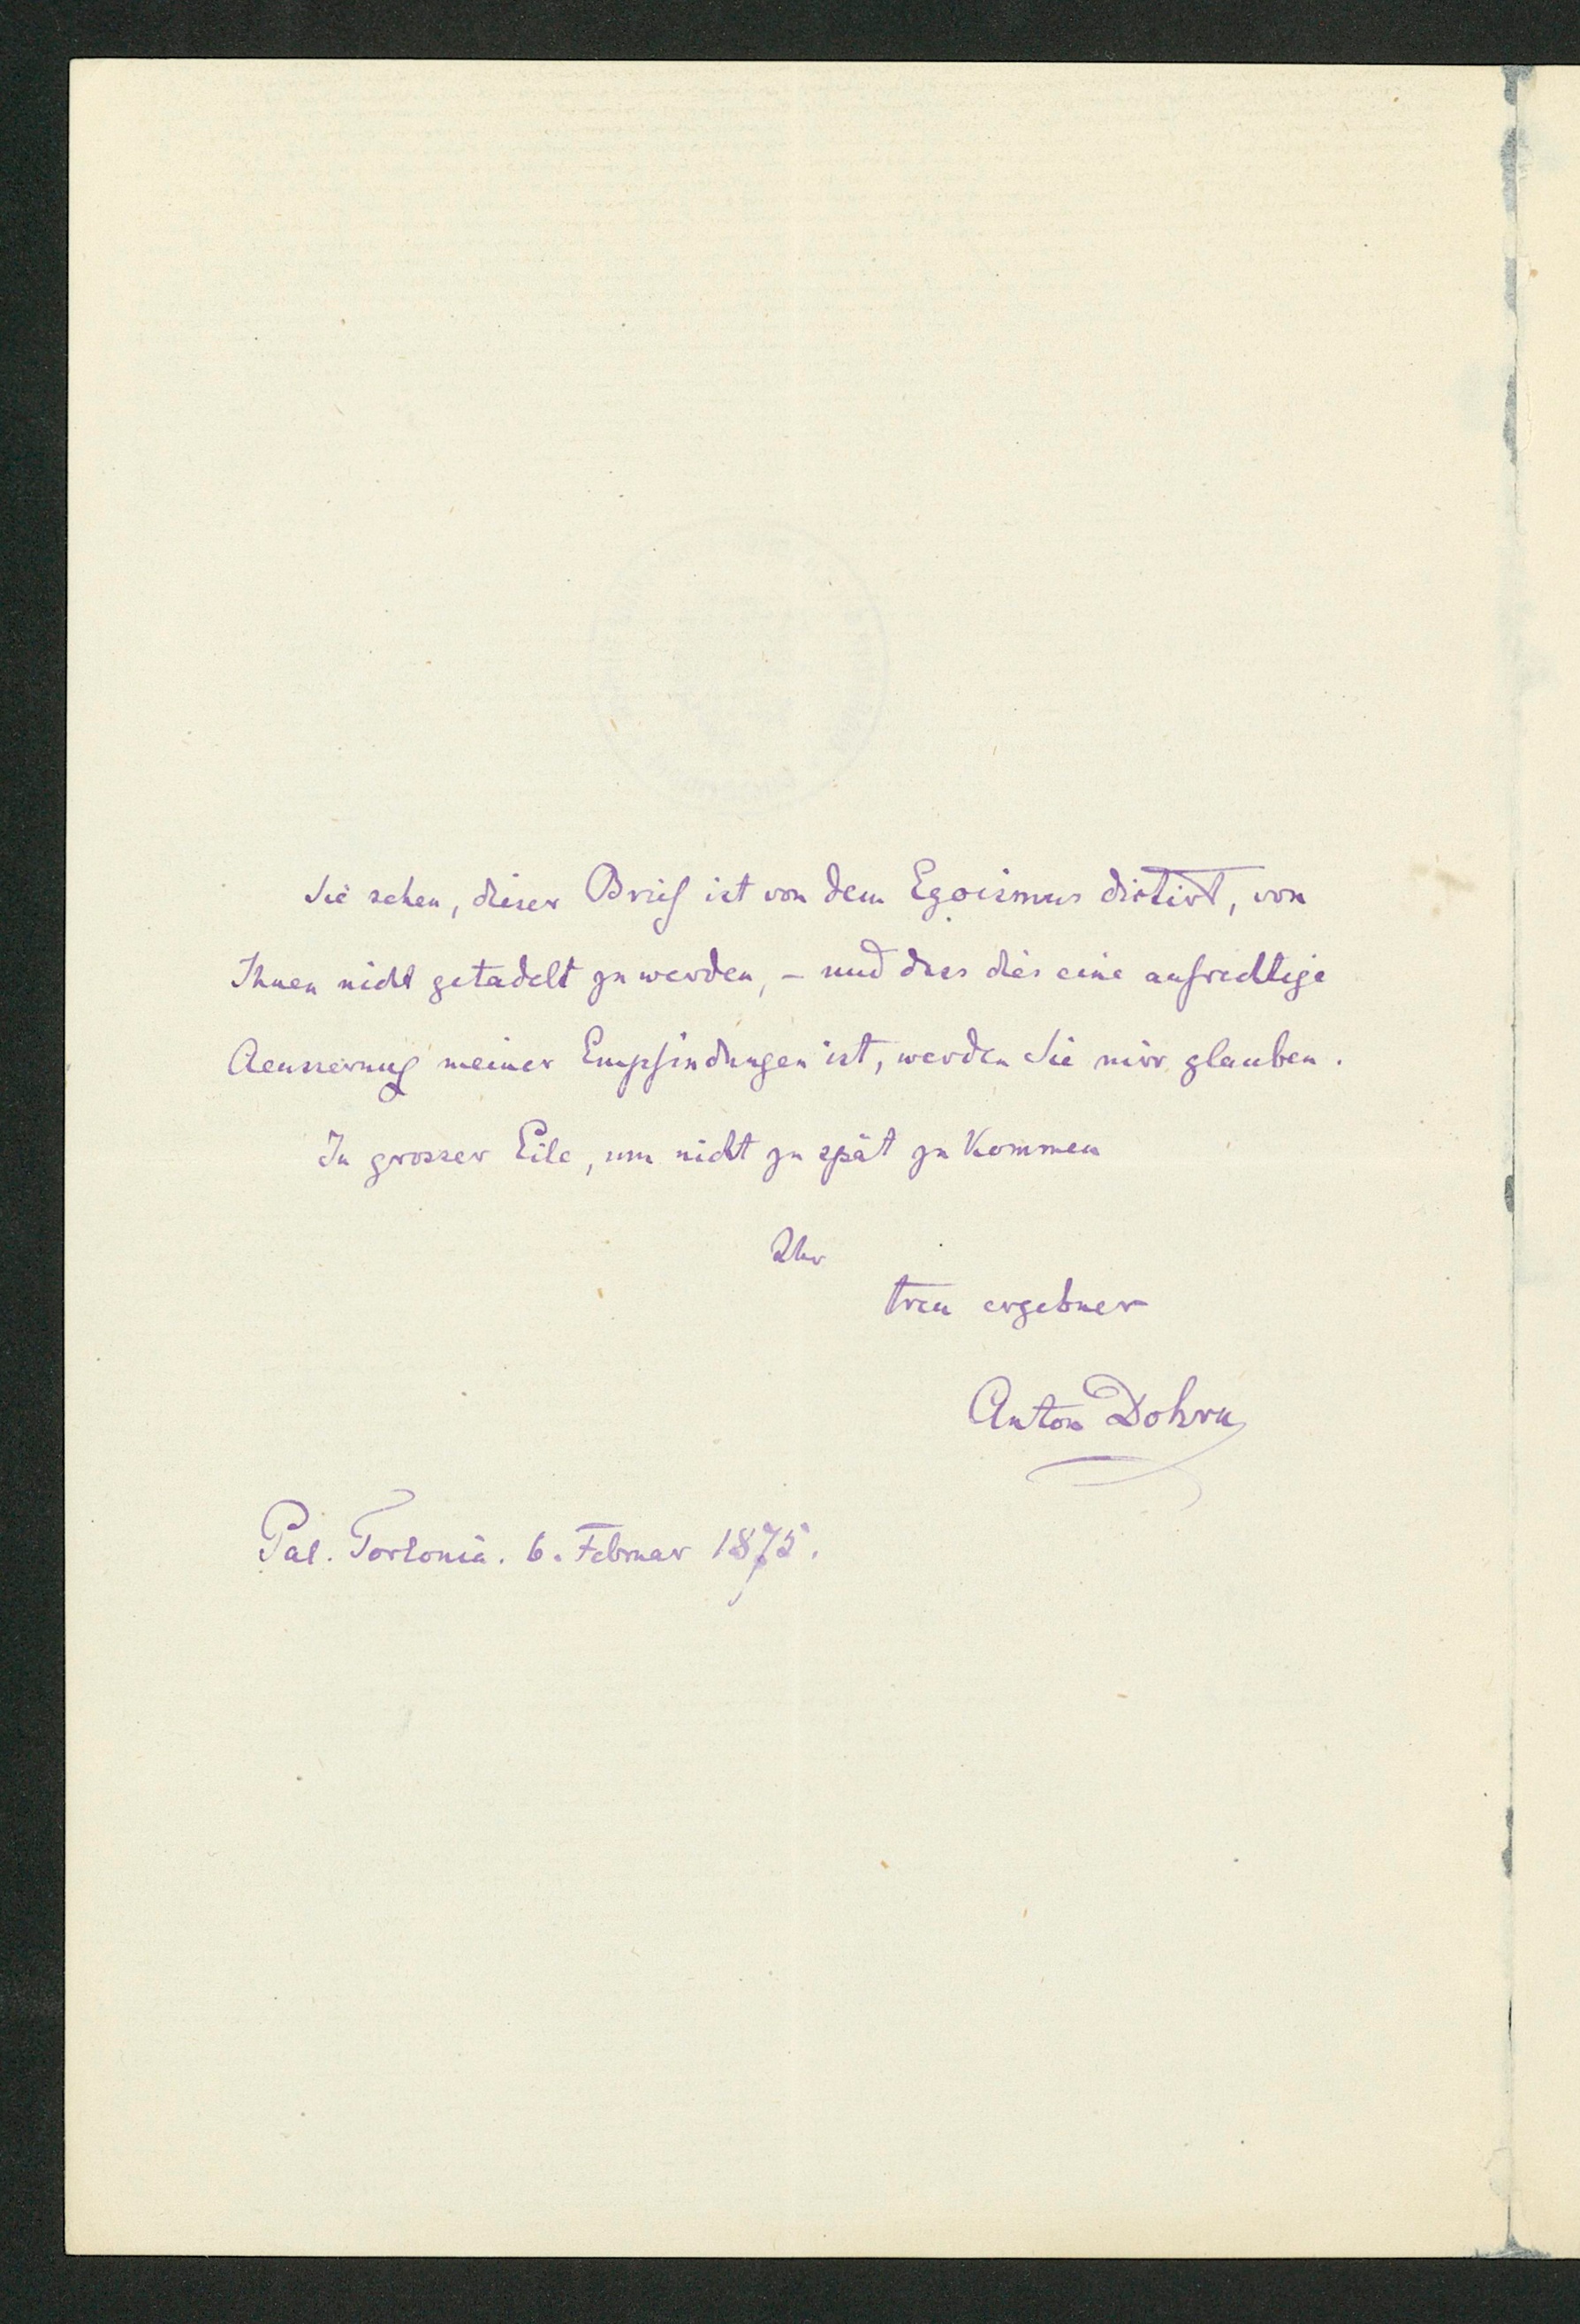 Sie sehen, dieser Brief ist von dem Egoismus dictirt, von
Ihnen nicht getadelt zu werden, – und dass dies eine aufrichtige
Aeusserung meiner Empfindungen ist, werden Sie mir glauben.
In grosser Eile, um nicht zu spät zu kommen
Ihr
treu ergebner
Anton Dohrn
Pal. Torlonia. 6. Februar 1875.